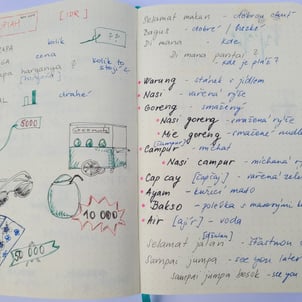 [IDR]
APA
kolik
cena
apa harganya?
kolik to stojí?
AL
drahé
5000
10 000
50 000
Selamat makan - dobrou chuť
Bagus - dobré / hezké
Di mana - kde
Di mana pantai?
kde je pláž?
Warung - stánek s jídlem
Nasi - vařená rýže
Goreng - smažený
Nasi goreng - smažená rýže
Mie goreng - smažené nudle
Campur - míchat
Nasi campur - míchaná rý
Cap cay [čapčaj] - vařená zele
Ayam - kuřecí maso
Bakso - polévka s masovými
Air [ajr] - voda
Selamat jalan - šťastnou
Sampai jumpa - see you later
Sampai jumpa besok - see you